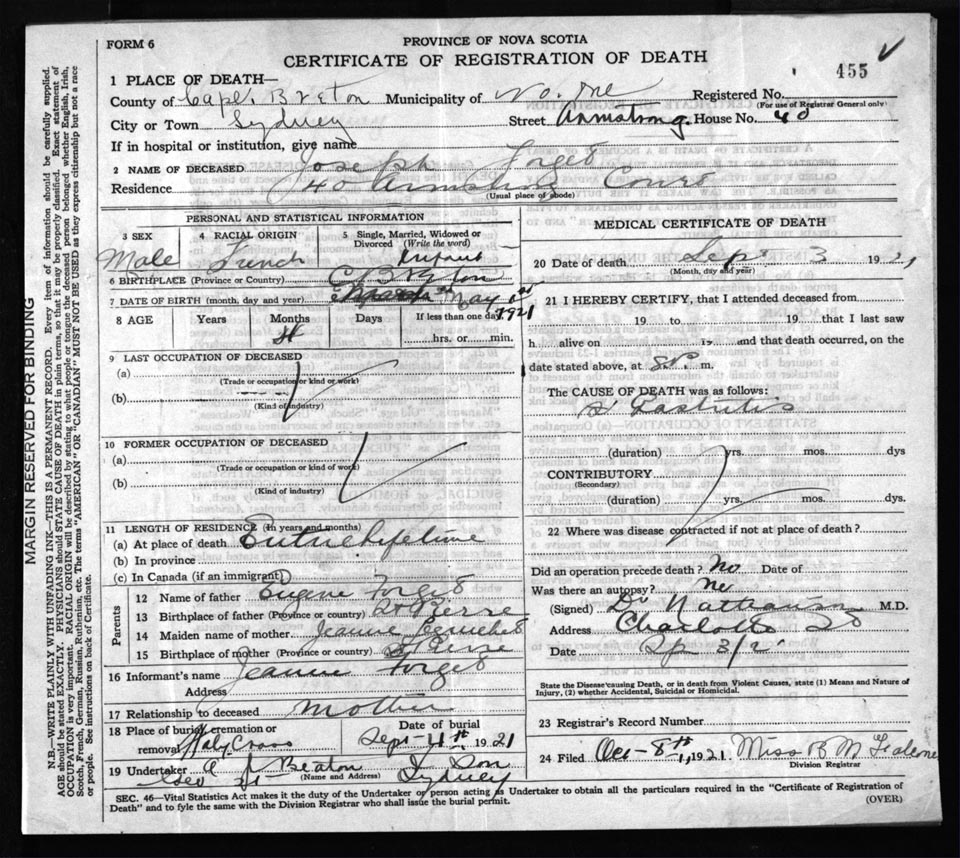 FORM 6
PROVINCE OF NOVA SCOTIA
CERTIFICATE OF REGISTRATION OF DEATH
455
1 PLACE OF DEATH—
County of Cape Breton Municipality of No. one Registered No.
(For use of Registrar General only)
City or Town Sydney Street Armstrong House No. 40
If in hospital or institution, give name
2 NAME OF DECEASED Joseph Forget
Residence 40 Armstrong Court
(Usual place of abode)
PERSONAL AND STATISTICAL INFORMATION
3 SEX Male
4 RACIAL ORIGIN French
5 Single, Married, Widowed or Divorced (Write the word)
6 BIRTHPLACE (Province or Country) C Breton
7 DATE OF BIRTH (month, day and year) May 1921
8 AGE Years Months 4 Days If less than one day
hrs. or min.
9 LAST OCCUPATION OF DECEASED
(a)
(Trade or occupation or kind or work)
(b)
(Kind of industry)
10 FORMER OCCUPATION OF DECEASED
(a)
(Trade or occupation or kind of work)
(b)
(Kind of industry)
11 LENGTH OF RESIDENCE (in years and months)
(a) At place of death Entire lifetime
(b) In province
(c) In Canada (if an immigrant)
Parents
12 Name of father Eugene Forget
13 Birthplace of father (Province or country) St Pierre
14 Maiden name of mother Jeanne
15 Birthplace of mother (Province or country) St Pierre
16 Informant's name Jeanne Forget
Address
17 Relationship to deceased Mother
18 Place of burial, cremation or removal Holy Cross
Date of burial Sept 4th 1921
19 Undertaker A J Beaton & Son
(Name and Address) Sydney
MEDICAL CERTIFICATE OF DEATH
20 Date of death Sept 3 1921
(Month, day and year)
21 I HEREBY CERTIFY, that I attended deceased from
19 to 19 that I last saw
h alive on 19 and that death occurred, on the
date stated above, at 8 P. m.
The CAUSE OF DEATH was as follows:
(duration) yrs. mos. dys
CONTRIBUTORY
(Secondary)
(duration) yrs. mos. dys.
22 Where was disease contracted if not at place of death?
Did an operation precede death? No Date of
Was there an autopsy? No
(Signed) Dr Nathanson M.D.
Address Charlotte St
Date Sp 3/21
State the Disease causing Death, or in death from Violent Causes, state (1) Means and Nature of
Injury, (2) whether Accidental, Suicidal or Homicidal.
23 Registrar's Record Number
24 Filed Oct 8th, 1921 Miss B M
Division Registrar
SEC. 46—Vital Statistics Act makes it the duty of the Undertaker or person acting as Undertaker to obtain all the particulars required in the "Certificate of Registration of
Death" and to fyle the same with the Division Registrar who shall issue the burial permit.
(OVER)
MARGIN RESERVED FOR BINDING
N.B.—WRITE PLAINLY WITH UNFADING INK—THIS IS A PERMANENT RECORD. Every item of information should be carefully supplied.
AGE should be stated EXACTLY. PHYSICIANS should STATE CAUSE OF DEATH in plain terms, so that it may be properly classified. Exact statement of
OCCUPATION is very important. RACIAL ORIGIN will be described by stating to what people or tongue the deceased person belonged whether English, Irish,
Scotch, French, German, Russian, Ruthenian, etc. The terms "AMERICAN" OR "CANADIAN" MUST NOT BE USED as they express citizenship but not a race
or people. See instructions on back of Certificate.